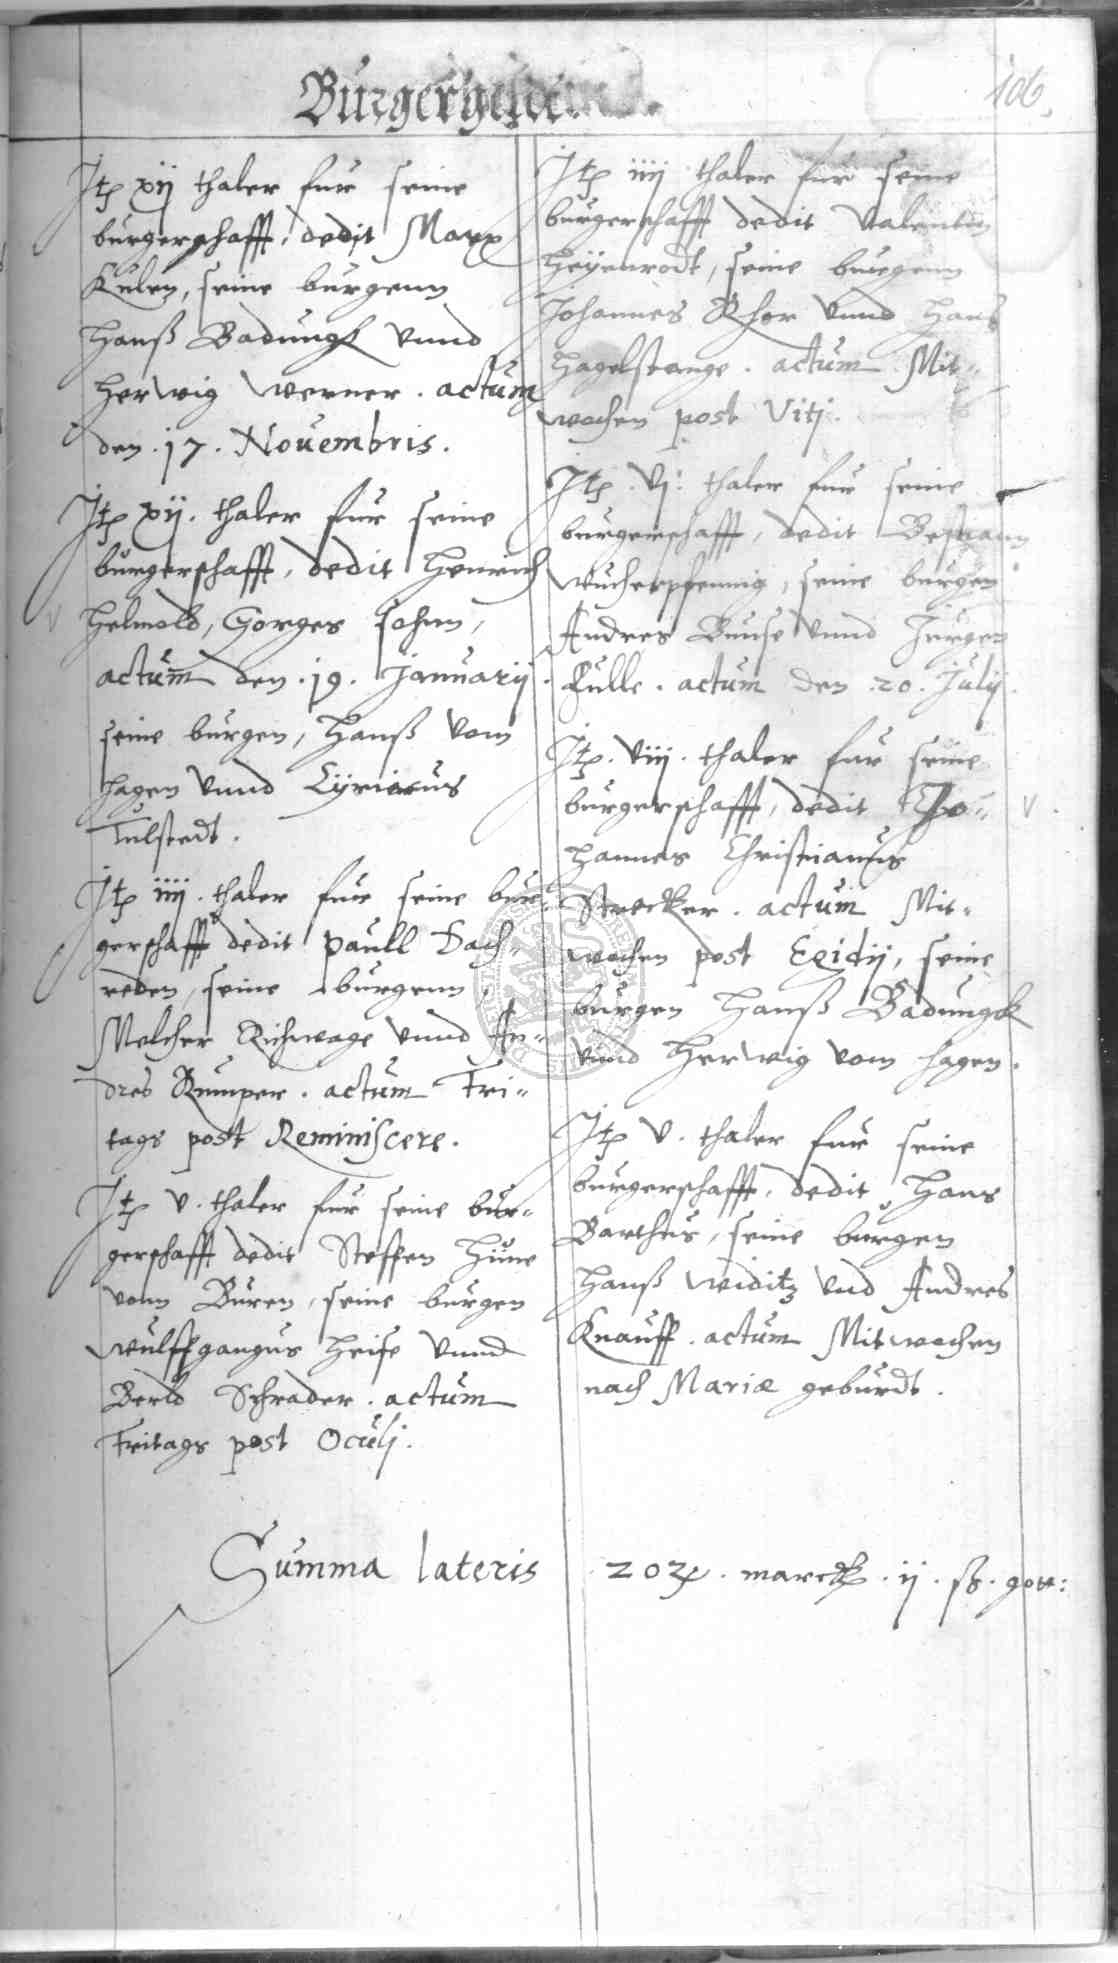 106
Burgergelde
Itp xij thaler fur seine
burgerschafft, dedit Marx
Kulen, seine burgenn
Hanß Badungk vnnd
Herwig Werner. actum
den .17. Nouembris.
Itp xij. thaler fur seine
burgerschafft, dedit Henrich
Helmold, Gorges sohnn,
actum den .19. Januarij.
seine burgen, Hanß vom
Hagen vnnd Cyriacus
Tulstedt.
Itp iiij. thaler fur seine bur-
gerschafft dedit Paull Dach-
reden, seine burgenn,
Melcher Richwage vnnd An-
dres Kumper. actum Fri-
tags post Reminiscere.
Itp v. thaler fur seine bur-
gerschafft dedit Steffen Hune
vonn Buren, seine burgen
Wulffgangus Heise vnnd
Berld Schrader. actum
Fritags post Oculj.
Itp iiij thaler fur seine
burgerschafft dedit Valentin
Heyenrodt, seine burgenn
Johannes Rhor vnnd Hans
Hagelstange. actum Mit-
wochen post Vitj.
Itp .vj. thaler fur seine
burgerschafft, dedit Bestiann
Wucherpfennig, seine burgen
Andres Bause vnnd Jurgen
Fulle. actum den .20. Julij.
Itp. viij. thaler fur seine
burgerschafft, dedit Jo-
hannes Christianus
Strecker. actum Mit-
wochen post Egidij, seine
burgen Hanß Badungk
vnnd Herwig vom Hagen.
Itp v. thaler fur seine
burgerschafft, dedit, Hans
Barthus, seine burgen
Hanß Widitz vnd Andres
Knauff. actum Mitwochen
nach Mariæ geburdt.
Summa lateris marck . ij . ß .